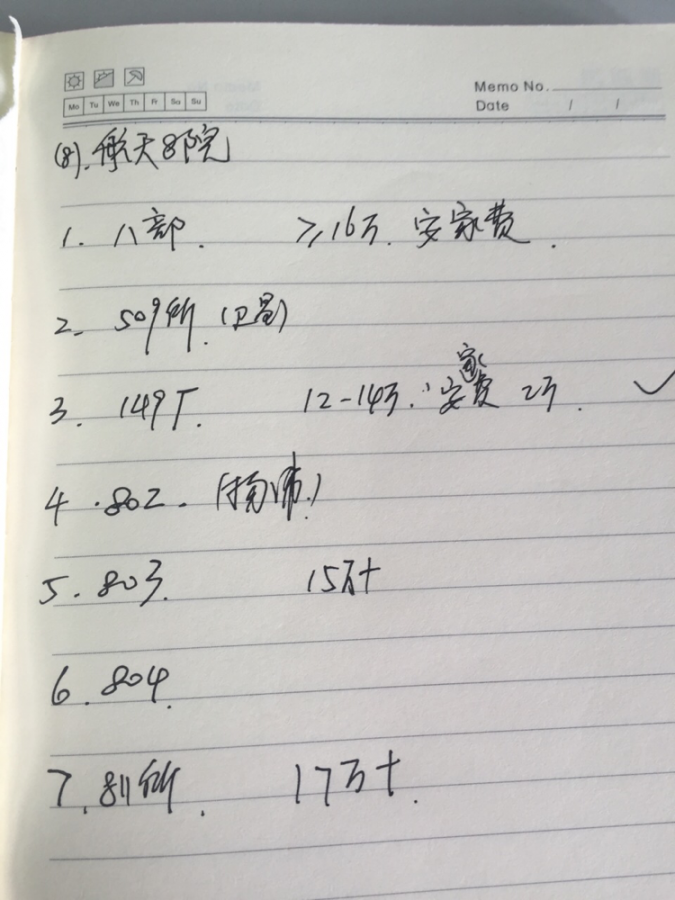 Mo Tu We Th Fr Sa Su
Memo No.
Date / /
(8). 航天8院
1. 八部. ≥16万. 安家费.
2. 509所. (卫星)
3. 149厂. 12-14万. 安家费 2万. ✓
4. 802.
5. 803. 15万+
6. 804.
7. 811所. 17万+.